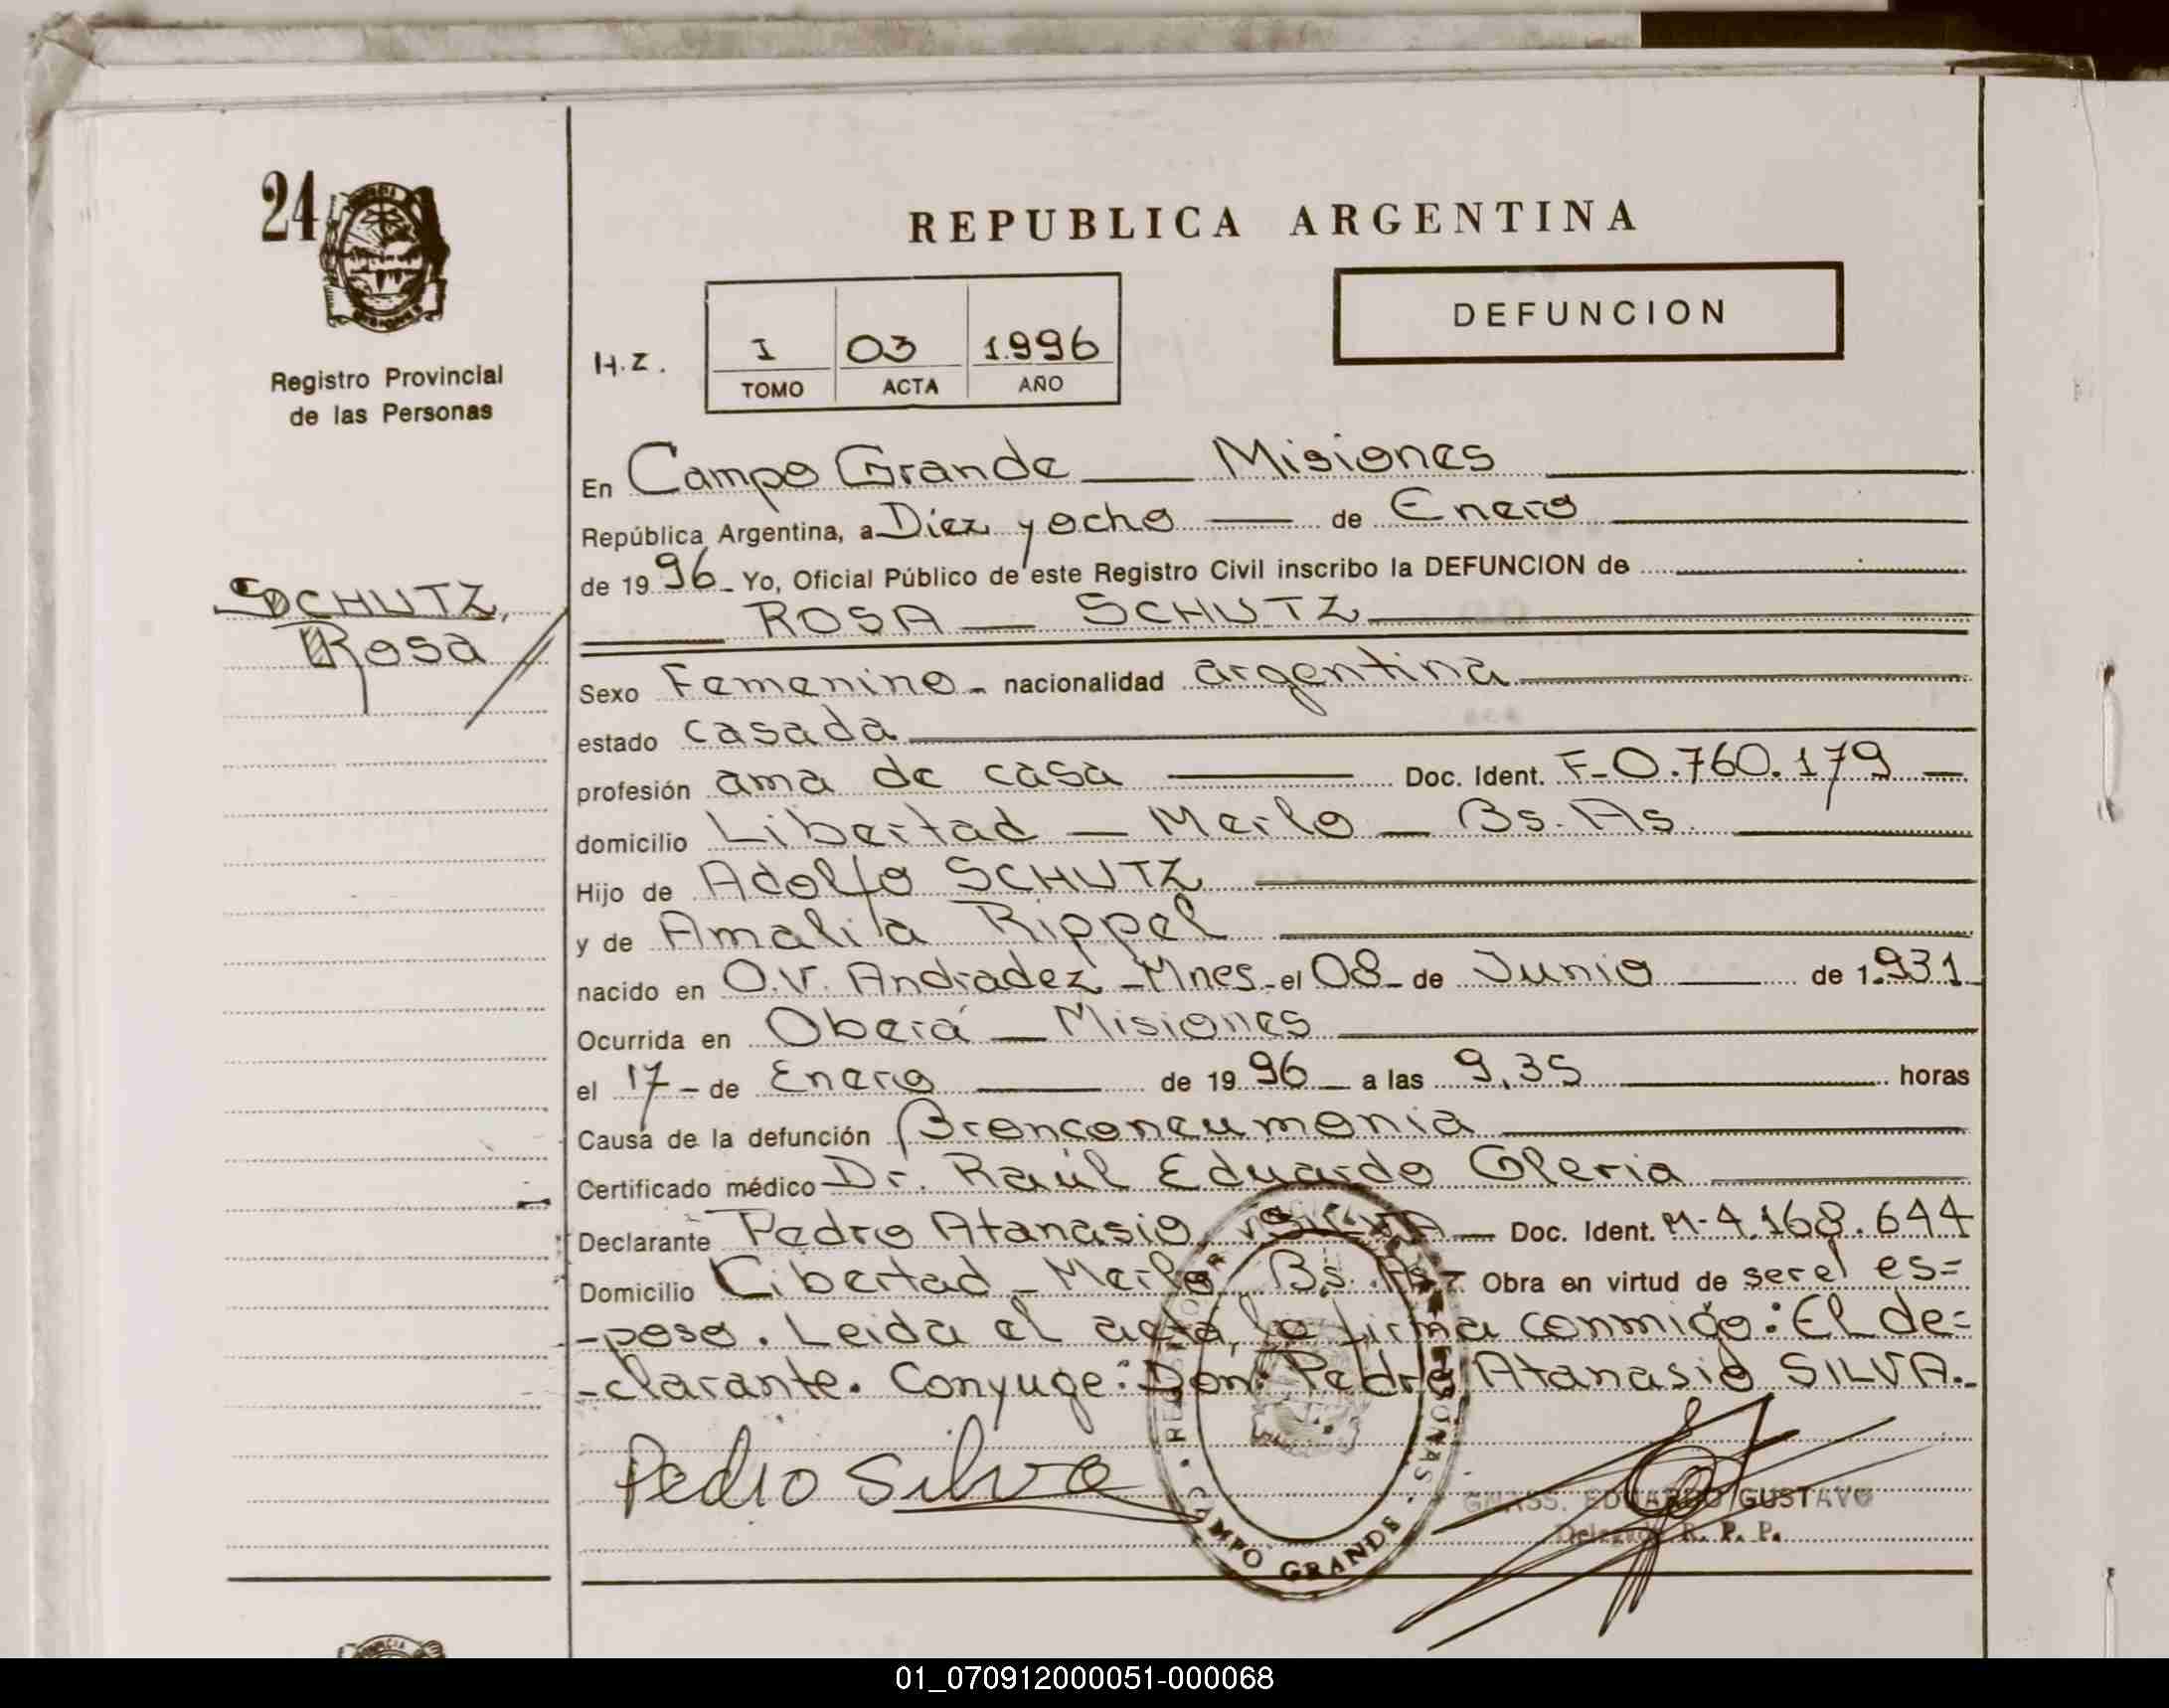 24
REPUBLICA ARGENTINA
DEFUNCION
H.Z. I 03 1.996
TOMO ACTA AÑO
Registro Provincial
de las Personas
SCHUTZ,
Rosa
En Campo Grande — Misiones
República Argentina, a Diez y ocho — de Enero
de 19 96 - Yo, Oficial Público de este Registro Civil inscribo la DEFUNCION de
ROSA — SCHUTZ
Sexo Femenino - nacionalidad argentina
estado casada
profesión ama de casa — Doc. Ident. F-0.760.179 —
domicilio Libertad — Merlo — Bs. As.
Hijo de Adolfo SCHUTZ
y de Amalia Rippel
nacido en O.V. Andradez - Mnes - el 08 - de Junio — de 1.931
Ocurrida en Oberá — Misiones
el 17 - de Enero — de 19 96 — a las 9,35 — horas
Causa de la defunción Bronconeumonia
Certificado médico Dr. Raúl Eduardo Gleria
Declarante Pedro Atanasio SILVA — Doc. Ident. M-4.168.644
Domicilio Libertad - Merlo Bs. As - Obra en virtud de ser el es=
-poso. Leida el acta, la firma conmigo: El de=
-clarante. Conyuge: Don: Pedro Atanasio SILVA.-
Pedro Silva
GNASS. EDUARDO GUSTAVO
Delegado R. P. P.
CAMPO GRANDE
01_070912000051-000068